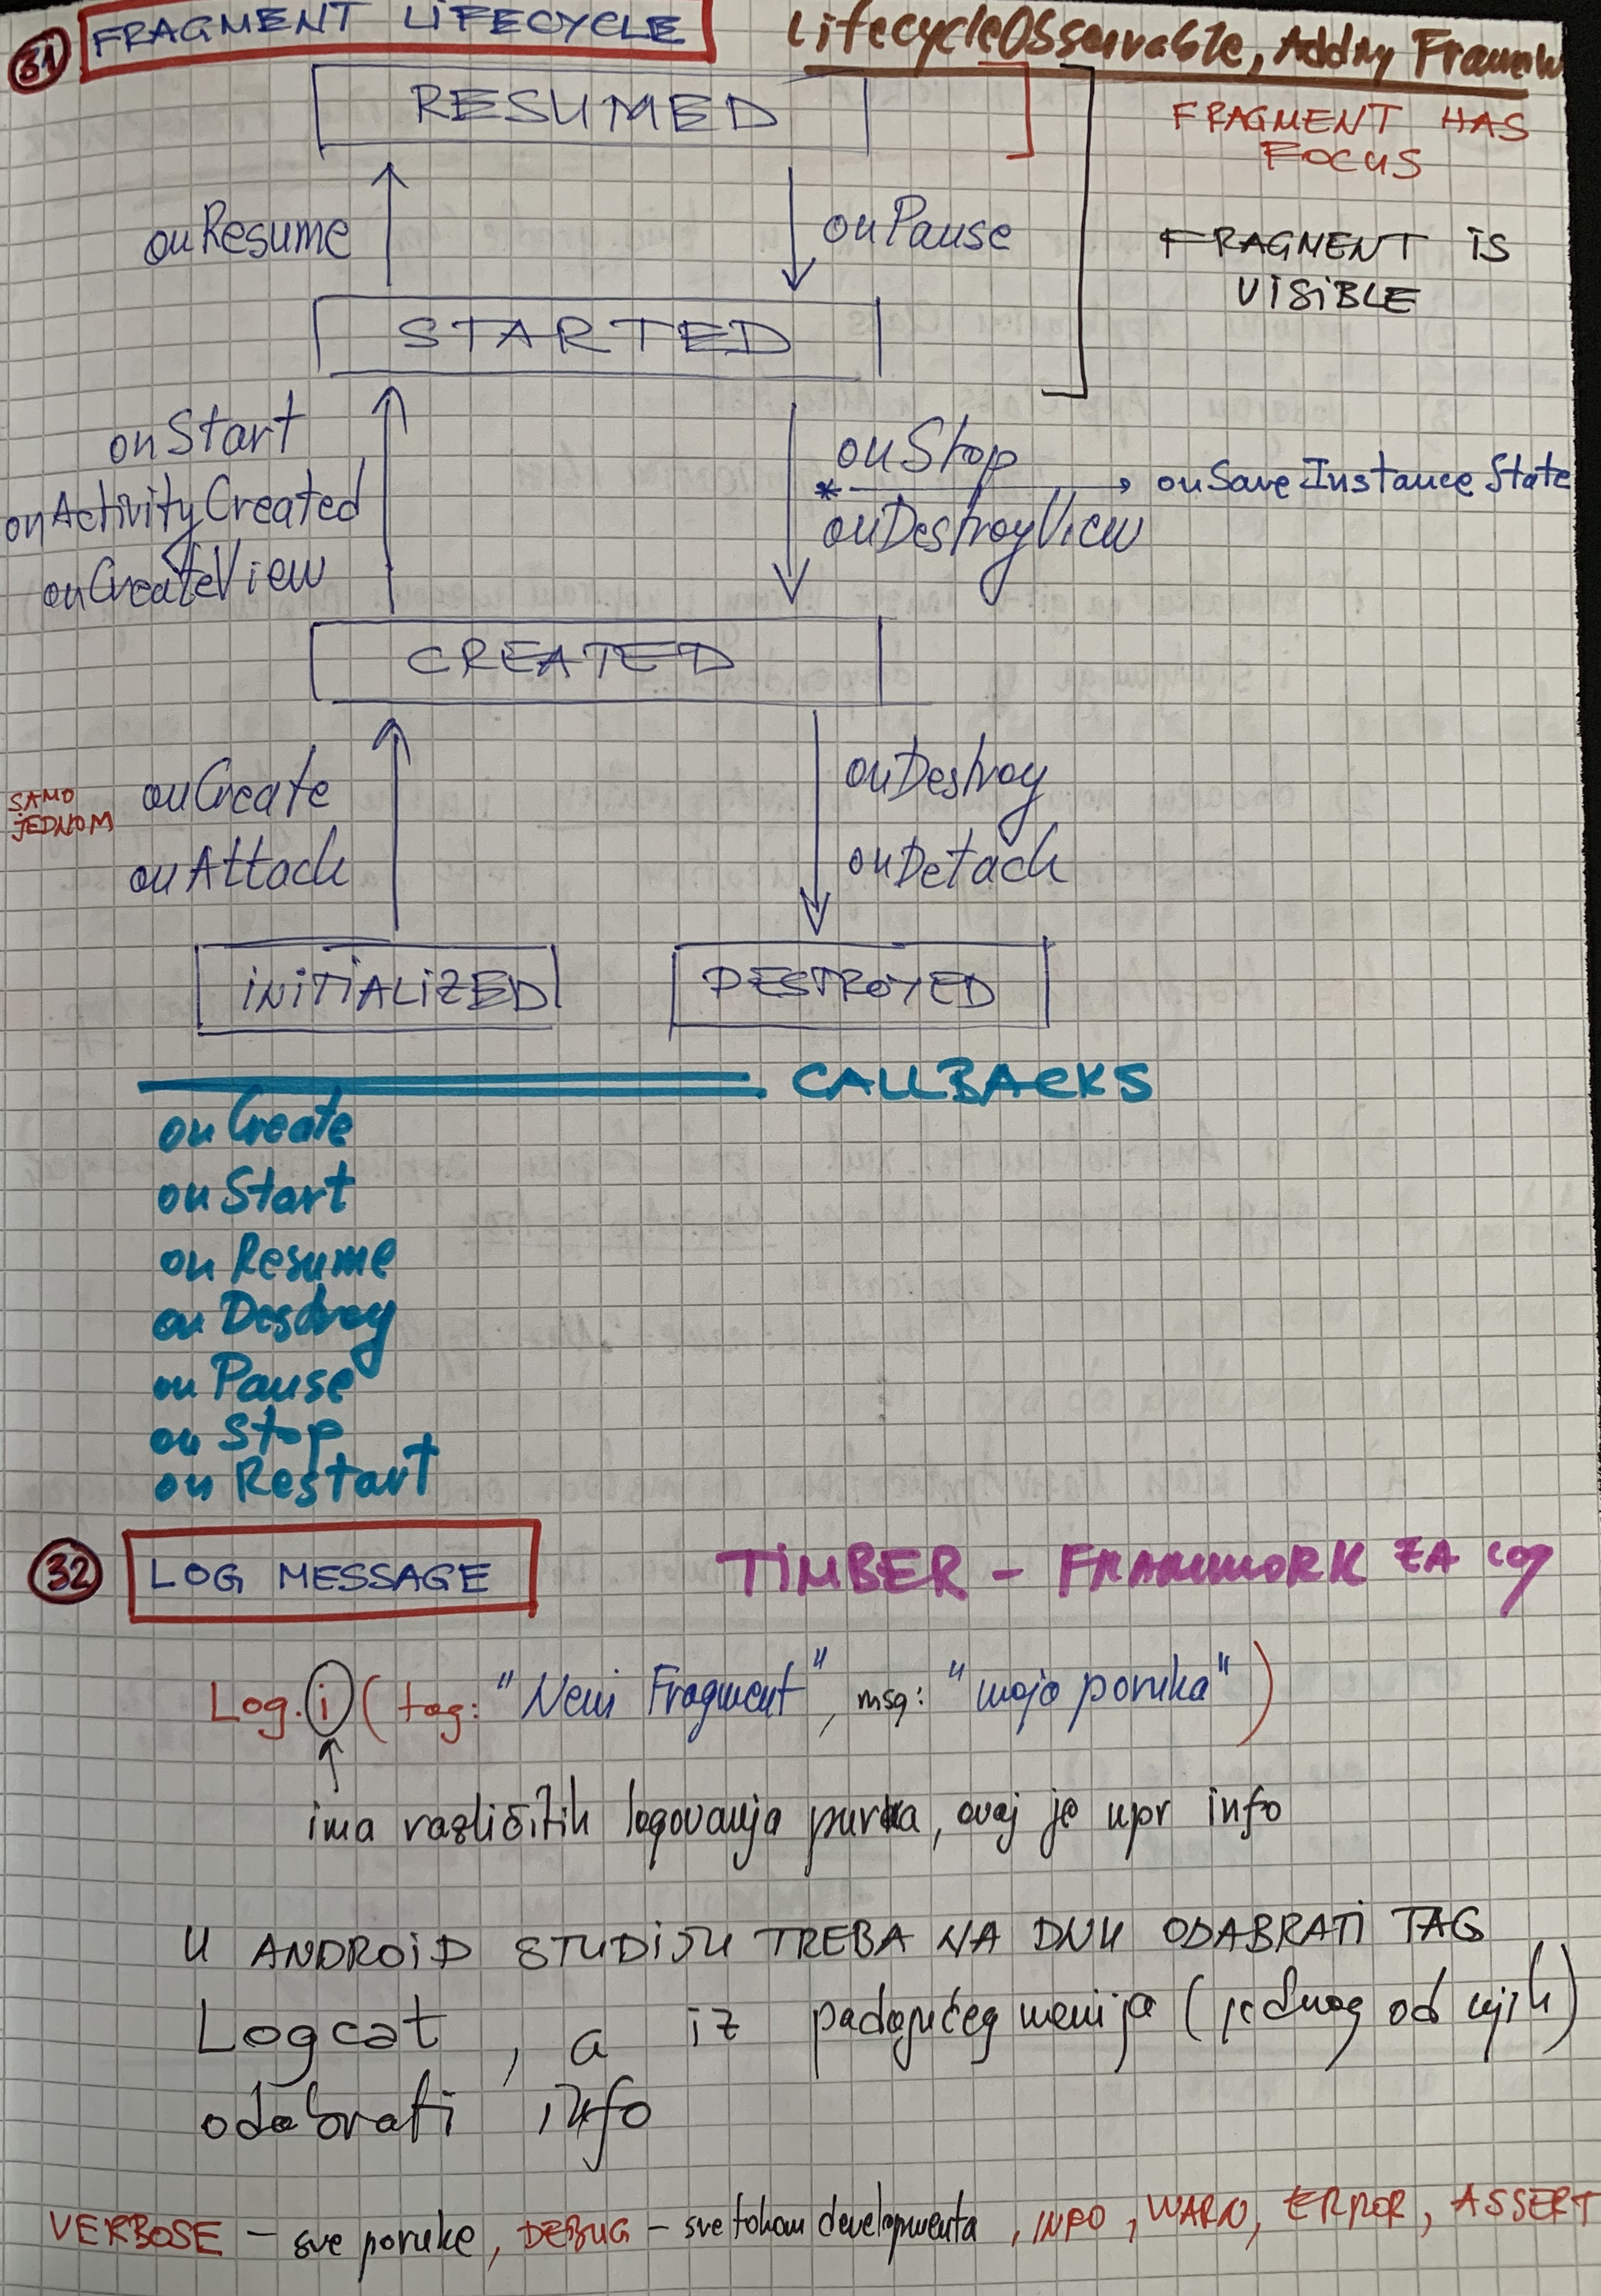 31 FRAGMENT LIFECYCLE
LifecycleObservable, Adding Framew
RESUMED
FRAGMENT HAS
FOCUS
onResume
onPause
FRAGMENT IS
VISIBLE
STARTED
onStart
onActivityCreated
onCreateView
onStop
* → onSaveInstanceState
onDestroyView
CREATED
SAMO
JEDNOM
onCreate
onAttach
onDestroy
onDetach
INITIALIZED
DESTROYED
CALLBACKS
onCreate
onStart
onResume
onDestroy
onPause
onStop
onRestart
32 LOG MESSAGE
TIMBER - FRAMWORK ZA log
Log.i (tag: "Neni Fragment", msg: "moja poruka")
ima različitih logovanja poruka, ovaj je npr info
U ANDROID STUDIJU TREBA NA DNU ODABRATI TAG
Logcat, a iz padajućeg menija (jednog od njih)
odabrati info
VERBOSE - sve poruke, DEBUG - sve tokom developmenta, INFO, WARN, ERROR, ASSERT